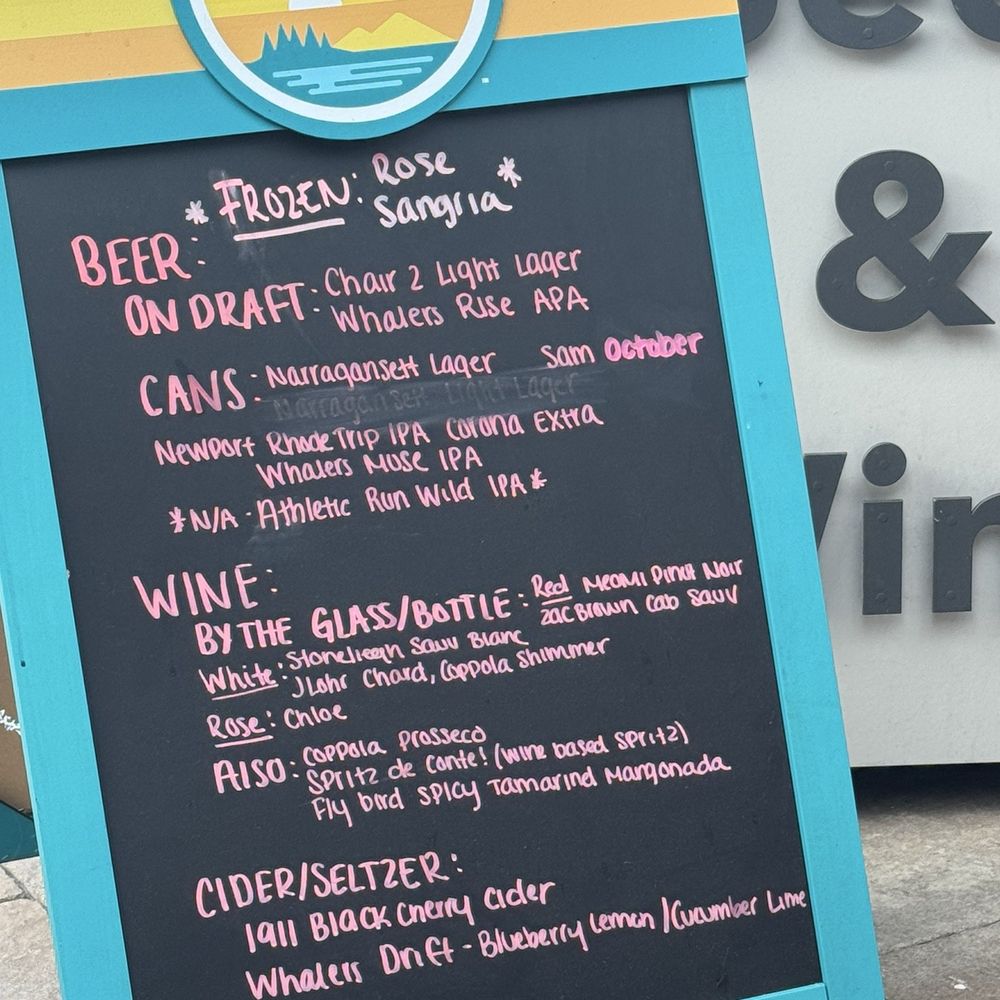 * FROZEN: Rose Sangria *
BEER:
ON DRAFT: Chair 2 Light Lager
Whalers Rise APA
CANS: Narragansett Lager Sam October
Narragansett Light Lager
Newport Rhode Trip IPA Corona Extra
Whalers Muse IPA
*N/A - Athletic Run Wild IPA*
WINE:
BY THE GLASS/BOTTLE: Red Meomi Pinot Noir
Zac Brown Cab Sauv
White: Stoneliegh Sauv Blanc
J Lohr Chard, Coppola Shimmer
Rose: Chloe
Also: Coppola Prosseco
Spritz de Conte! (wine based spritz)
Fly bird spicy Tamarind Margonada
CIDER/SELTZER:
1911 Black Cherry Cider
Whalers Drift - Blueberry Lemon/Cucumber Lime
&